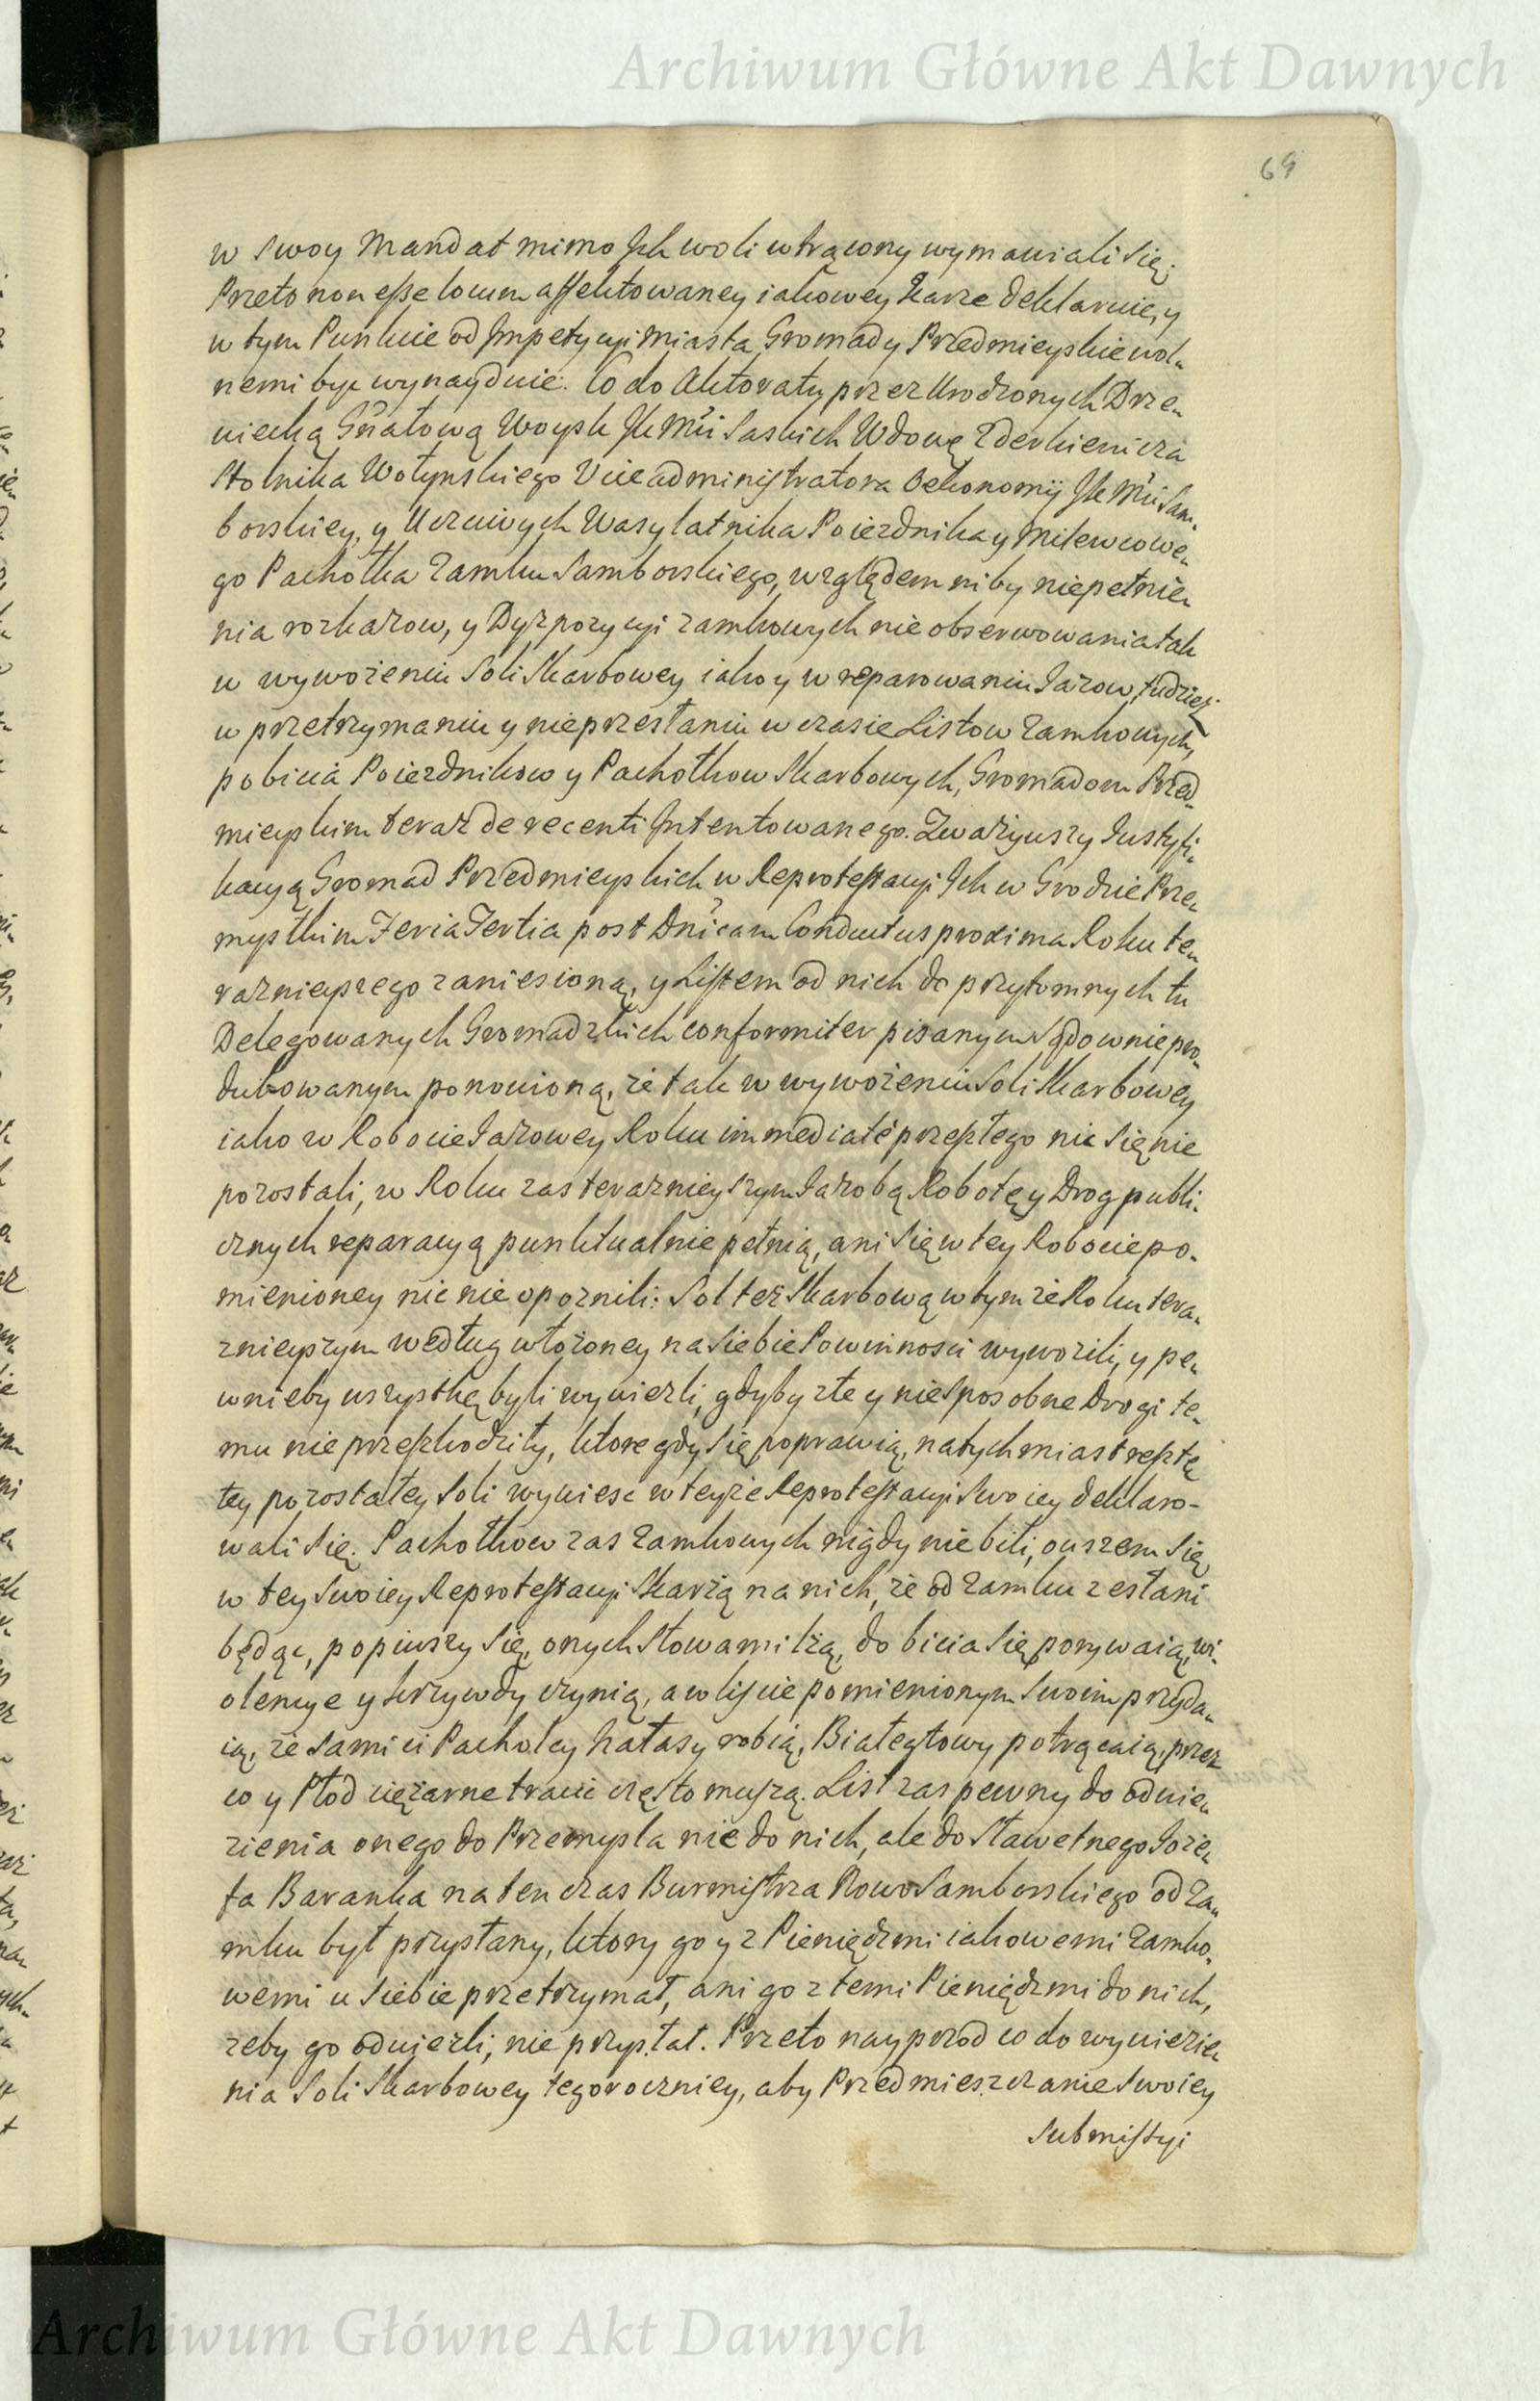 Archiwum Główne Akt Dawnych
69
w swoy Mandat mimo Ich woli wtrącony wymawiali się;
Przeto non esse locum affektowaney iakowey Karze deklaruie, y
w tym Punkcie od Impetycyi Miasta Gromady Przedmieyskie wol„
nemi być wynayduie. Co do Aktoratu przez Urodzonych Drze„
wiecką Gnałową Woysk JK Mći Saskich Wdowę Zderkiewicza
Stolnika Wołynskiego Viceadministratora Oekonomij JK Mći Sam„
borskiey, y Uczciwych Wasyla tnika Poiezdnika y Milewcowe„
go Pachołka Zamku Samborskiego, względem niby niepełnie„
nia rozkazow, y Dyzpozycyi zamkowych nie obserwowania tak
w wywożeniu Soli Skarbowey iako y w reparowaniu Jazow, tudziesz
w przetrzymaniu y nieprzesłaniu w czasie Listow Zamkowych,
pobicia Poiezdnikow y Pachołkow Skarbowych, Gromadom Przed„
mieyskim teraz de recenti Intentowanego. Zważywszy Justyfi„
kacyą Gromad Przedmieyskich w Reprotestacyi Ich w Grodzie Prze„
myskim Feria Tertia post Dnicam Conductus proxima Roku te„
raznieyszego zaniesioną, y Listem od nich do przytomnych tu
Delegowanych Gromadzkich conformiter pisanym Sądownie pro„
dukowanym ponowioną, że tak w wywożeniu Soli Skarbowey
iako w Robocie Jazowey Roku immediaté przeszłego nic się nie
pozostali, w Roku zas teraznieyszym Jazobą Robotę y Drog publi„
cznych reparacyą punktualnie pełnią, ani się w tey Robocie po„
mienioney nic nie opoznili: Sol też Skarbową w tymże Roku tera„
znieyszym według włożoney na siebie Powinnosci wywozili, y pe„
wnieby wszystkę byli wywiezli, gdyby złe y niesposobne Drogi te„
mu nie przeszkodziły, ktore gdy się poprawią, natychmiast resztę
tey pozostałey Soli wywiesć w teyże Reprotestacyi Swoiey deklaro-
wali się. Pachołkow zas Zamkowych nigdy nie bili, owszem się
w tey swoiey Reprotestacyi Skarżą na nich, że od Zamku zesłani
będąc, popiwszy się, onych słowami lżą, do bicia się porywaią, wi„
olencye y krzywdy czynią, a w liscie pomienionym swoim przyda„
ią, że sami ci Pacholcy hałasy robią, Białegłowy potrącaią, przez
co y Płod ciężarne tracić często muszą. List zas pewny do odwie„
zienia onego do Przemysla nie do nich, ale do Sławetnego Joze„
fa Baranka na ten czas Burmistrza NowoSamborskiego od Za„
mku był przysłany, ktory go y z Pieniędzmi iakowemi Zamko„
wemi u siebie przetrzymał, ani go z temi Pieniędzmi do nich,
żeby go odwiezli, nie przysłał. Przeto nayprzod co do wywiezie„
nia Soli Skarbowey tegoroczniey, aby Przedmieszczanie Swoiey
Submissyi
Archiwum Główne Akt Dawnych